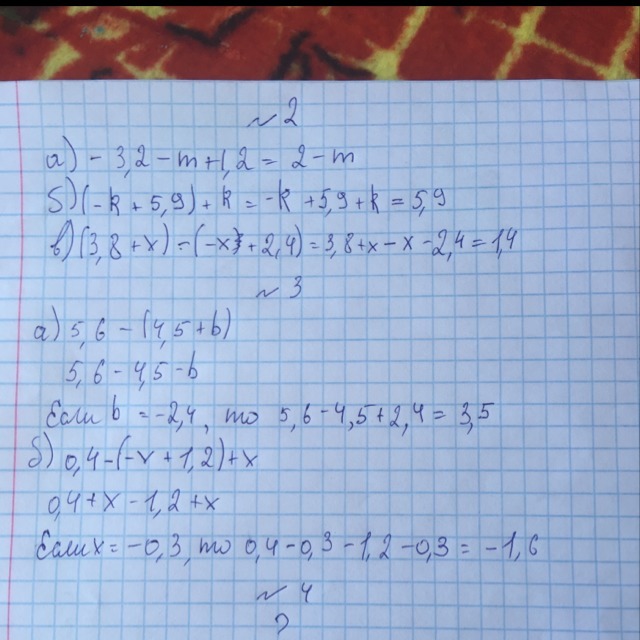 №2
а) - 3,2 - m + 1,2 = 2 - m
б) (-k + 5,9) + k = -k + 5,9 + k = 5,9
в) (3,8 + x) - (-x + 2,4) = 3,8 + x - x - 2,4 = 1,4
№3
а) 5,6 - (4,5 + b)
5,6 - 4,5 - b
Если b = -2,4, то 5,6 - 4,5 + 2,4 = 3,5
б) 0,4 - (-x + 1,2) + x
0,4 + x - 1,2 + x
Если x = -0,3, то 0,4 - 0,3 - 1,2 - 0,3 = -1,6
№4
?